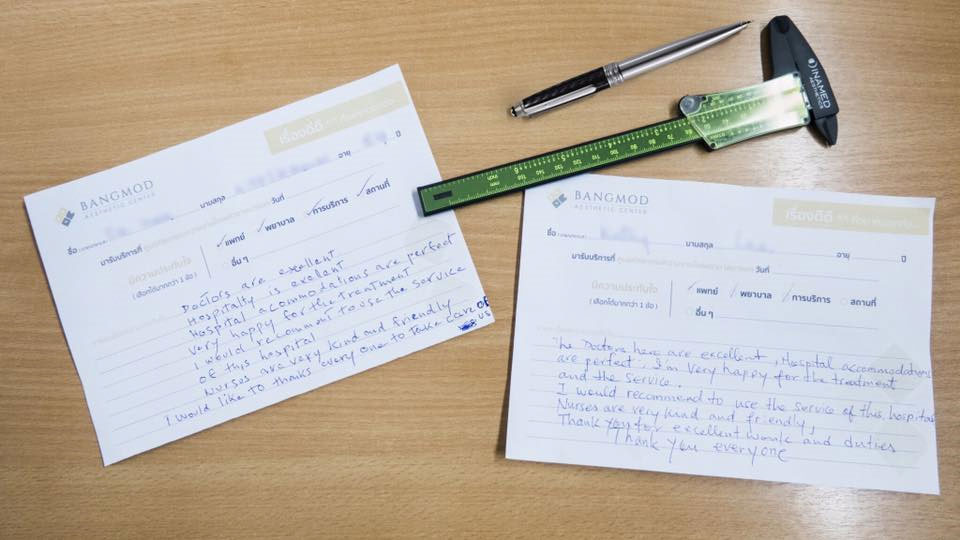 BANGMOD
AESTHETIC CENTER
เรื่องดีดี
ชื่อ
นามสกุล
อายุ
ปี
มารับบริการที่
วันที่
มีความประทับใจ
( เลือกได้มากกว่า 1 ข้อ )
แพทย์ พยาบาล การบริการ สถานที่
อื่น ๆ
Doctors are exellent
Hospitalty is exelent
Hospital acommodations are perfect
Very happy for the treatment
I would recomment to use the service
of this hospital
Nurses are very kind and friendly
I would like to thanks every one to take care of
us
INAMED
AESTHETICS
BANGMOD
AESTHETIC CENTER
เรื่องดีดี
ชื่อ
นามสกุล
อายุ
ปี
มารับบริการที่
วันที่
มีความประทับใจ
( เลือกได้มากกว่า 1 ข้อ )
แพทย์ พยาบาล การบริการ สถานที่
อื่น ๆ
The Doctors here are excellent, Hospital accommodations
are perfect, I'm very happy for the treatment
and the service.
I would recommend to use the service of this hospital
Nurses are very kind and friendly,
Thank you for excellent work and duties
Thank you everyone